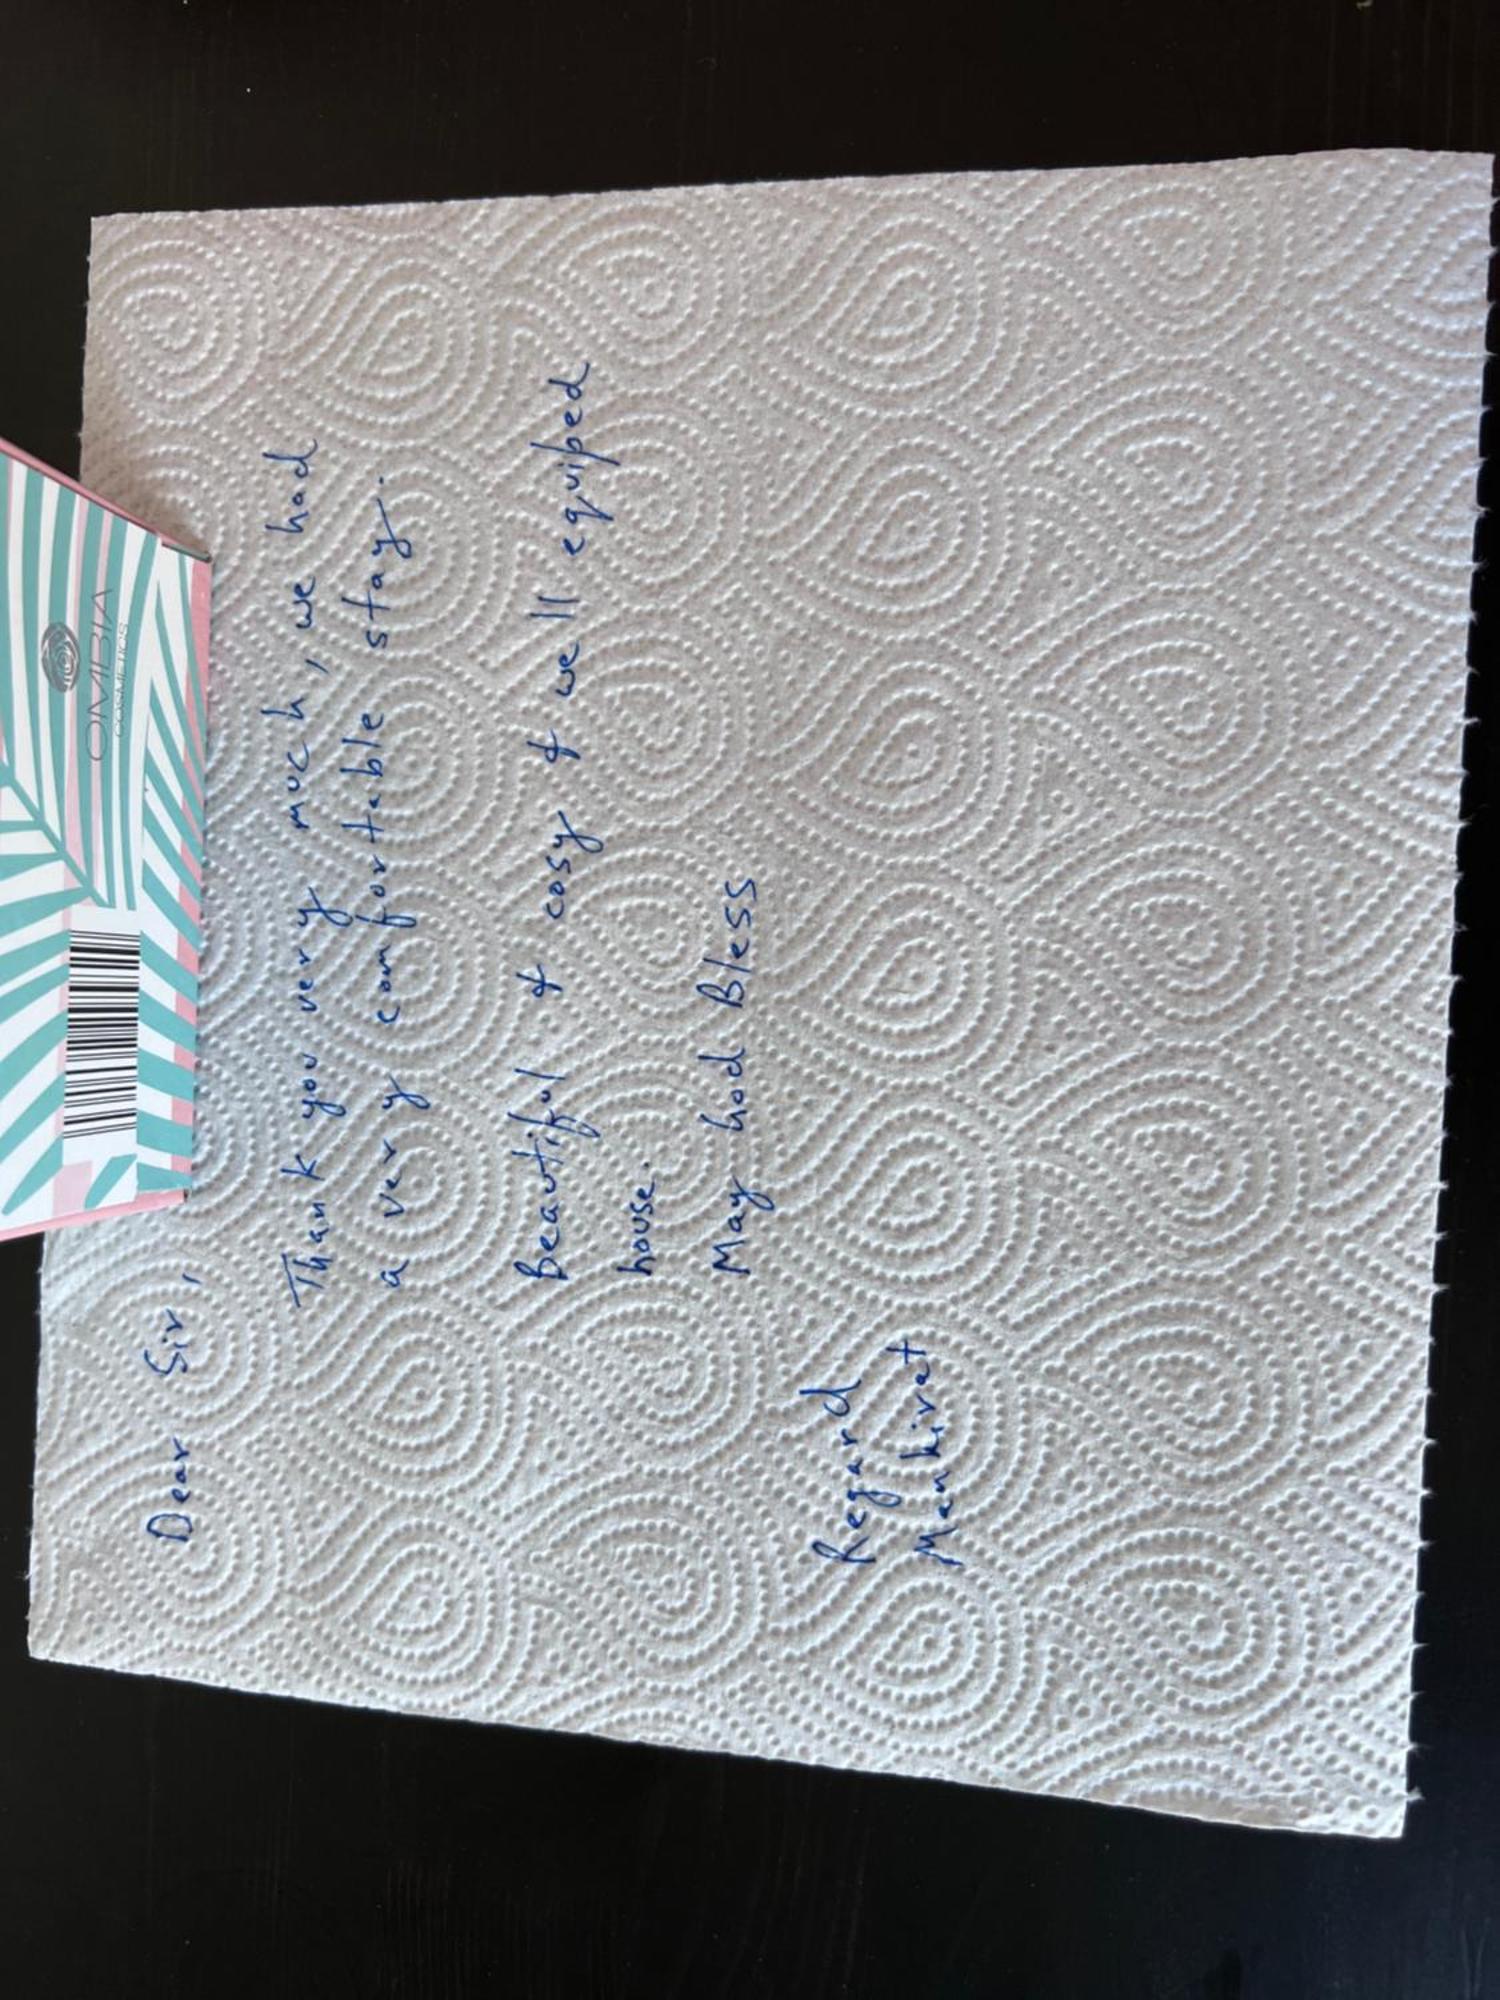 OMBIA
COSMETICS
Dear Sir,
Thank you very much, we had
a very comfortable stay.
Beautiful & cosy & well equiped
house.
May God Bless
Regard
Mankirat